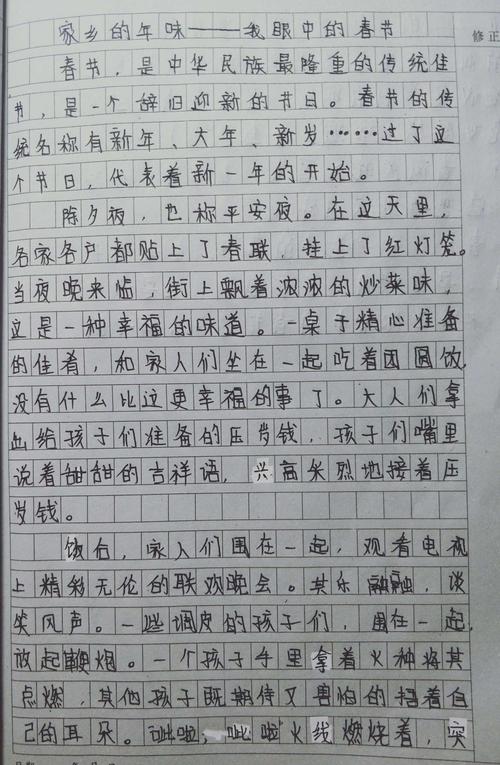 家乡的年味——我眼中的春节
修正
春节，是中华民族最隆重的传统佳
节，是一个辞旧迎新的节日。春节的传
统名称有新年、大年、新岁……过了这
个节日，代表着新一年的开始。
除夕夜，也称平安夜。在这天里，
各家各户都贴上了春联，挂上了红灯笼。
当夜晚来临，街上飘着浓浓的炒菜味，
这是一种幸福的味道。一桌子精心准备
的佳肴，和家人们坐在一起吃着团圆饭，
没有什么比这更幸福的事了。大人们拿
出给孩子们准备的压岁钱，孩子们嘴里
说着甜甜的吉祥语，兴高采烈地接着压
岁钱。
饭后，家人们围在一起，观看电视
上精彩无伦的联欢晚会。其乐融融，谈
笑风声。一些调皮的孩子们，围在一起，
放起鞭炮。一个孩子手里拿着火种将其
点燃，其他孩子既期待又害怕的捂着自
己的耳朵。呲啦，呲啦火线燃烧着，突